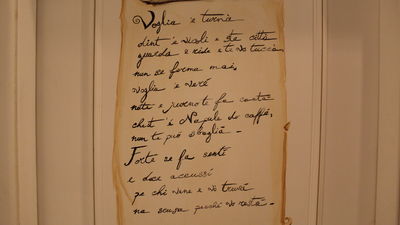 Voglia 'e turnà
dint' 'e vicoli e sta città
guarda e ride e te vo tuccà,
nun se ferma mai,
voglia 'e veré
notte e juorno te fa cantà
chest' è Napule do caffè,
nun te può sbaglià -
Forte se fa sentì
e doce accussì
pe chi vene e vo truvà
na scusa pecché vo restà -